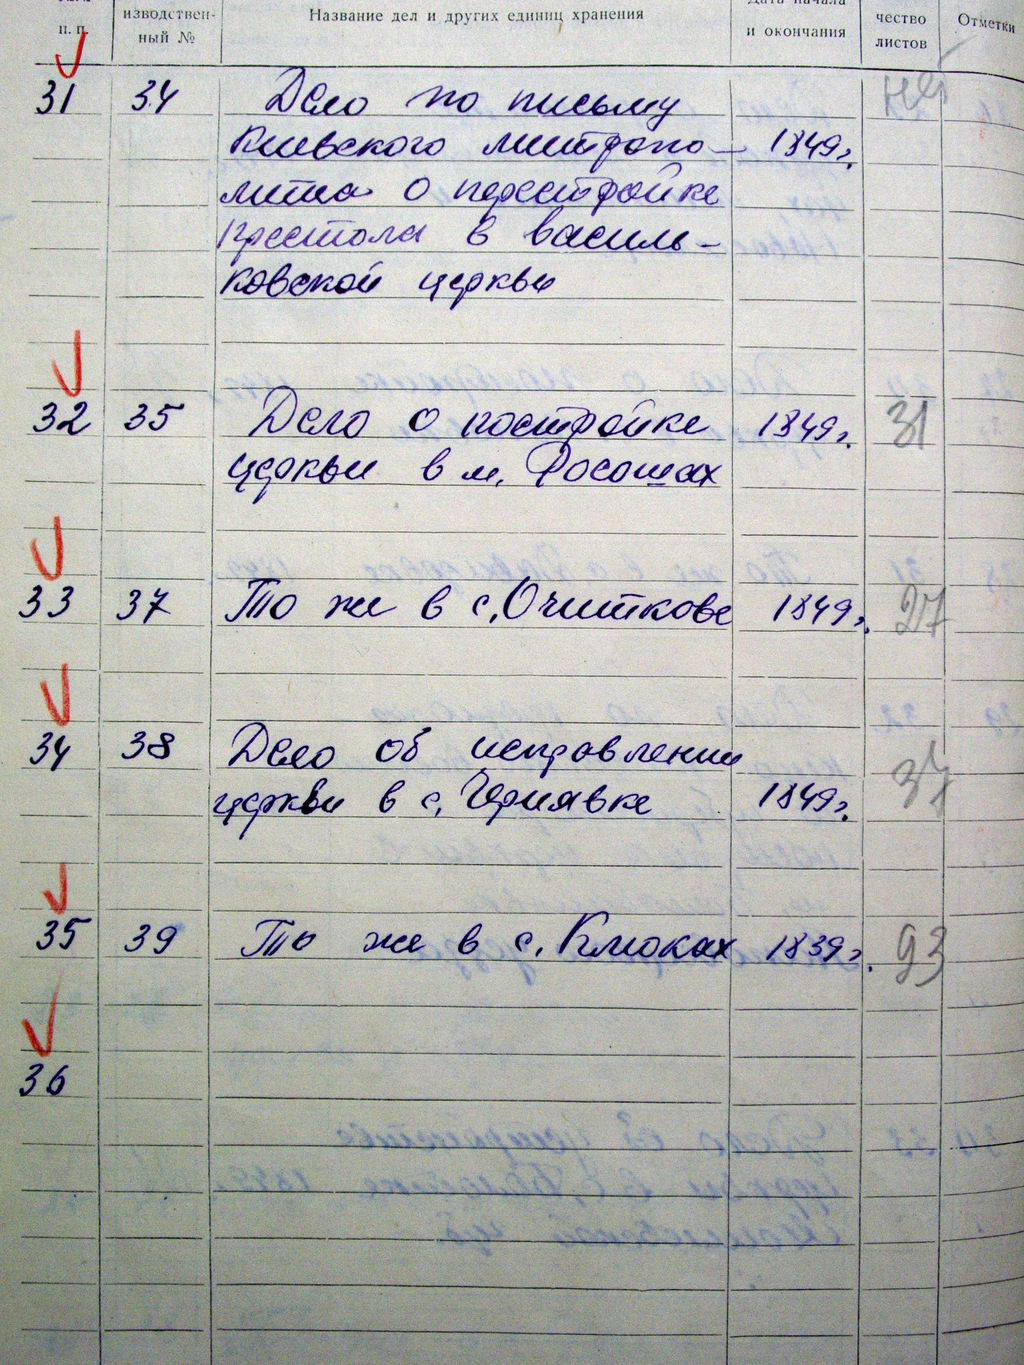 п. п.
изводствен-
ный №
Название дел и других единиц хранения
Дата начала
и окончания
чество
листов
Отметки
31 34 Дело по письму нет
Киевского митропо- 1849г.
лита о перестройке
престола в василь-
ковской церкви
32 35 Дело о постройке 1849г. 31
церкви в м. Росошах
33 37 То же в с. Очиткове 1849г. 27
34 38 Дело об исправлении 37
церкви в с. Чернявке 1849г.
35 39 То же в с. Клюках 1839г. 93
36